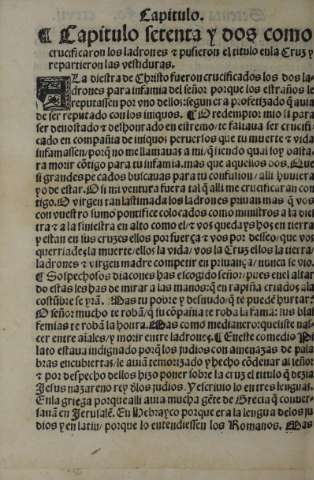 Capitulo.
¶ Capitulo setenta y dos como
crucificaron los ladrones ⁊ pusieron el titulo enla Cruz y
repartieron las vestiduras.
A La diestra de Christo fueron crucificados los dos la-
drones para infamia del señor porque los estraños le
reputassen por vno dellos: segun era profetizado q̃ auia
de ser reputado con los iniquos. ¶ O redemptor mio si para
ser denostado ⁊ deshonrado en estremo/ te faltaua ser crucifi-
cado en compañia de iniquos peruersos que tu muerte ⁊ vida
infamassen/ porq̃ no me llamauas a mi/ q̃ siendo qual soy bastа-
ra morir cõtigo para tu infamia, mas que aquellos dos. O que
si grandes pecados buscauas para tu confusion/ alli huuiera
yo de estar. O si mi ventura fuera tal q̃ alli me crucificaran con
tigo. O virgen tan lastimada los ladrones priuan mas q̃ vos
con vuestro sumo pontifice colocados como ministros a la dies
tra ⁊ a la siniestra en alto como el/ ⁊ vos quedays hos en tierra
y estan en sus cruzes ellos por fuerça ⁊ vos por desseo/ que vos
querriades la muerte/ ellos la vida/ vos la Cruz ellos la tierra/
ladrones ⁊ virgen madre competir en priuança/ nunca se vio.
¶ Sospechosos diacones has escogido señor/ pues enel altar
do estas les has de mirar a las manos: en rapiña criados a la
costũbre se yrã. Mas tu pobre y desnudo/ q̃ te puedẽ hurtar?
O señor mucho te robã/ q̃ su cõpañia te roba la fama: sus blas
femias te robã la honra. Mas como medianero quesiste nas-
cer entre aĩales/ y morir entre ladrones. ¶ En este comedio Pi
lato estaua indignado porq̃ los judios con amenazas de pala
bras encubiertas/ le auiã temorizado y hecho cõdenar al señor
⁊ por despecho dellos hizo poner sobre la cruz el titulo q̃ dezia
Jesus nazareno rey d̃los judios. Y escriuio lo en tres lenguas.
En la griega porque alli auia mucha gẽte de Grecia q̃ conuer-
sauã en Jerusalẽ. En Hebrayco porque era la lengua delos ju
dios y en latin/ porque lo entendiessen los Romanos. Mas